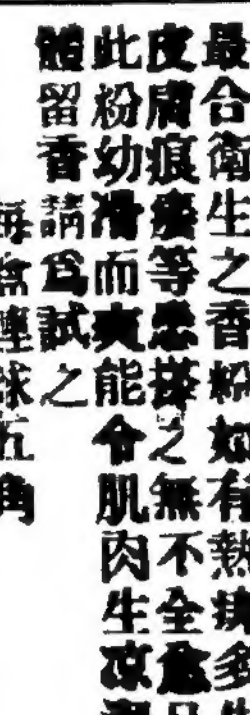 最合衛生之香粉如有熱痱多
皮膚痕癢等患搽之無不全愈
此粉幼滑而爽能令肌肉生凉
體留香請爲試之
每盒銀五角